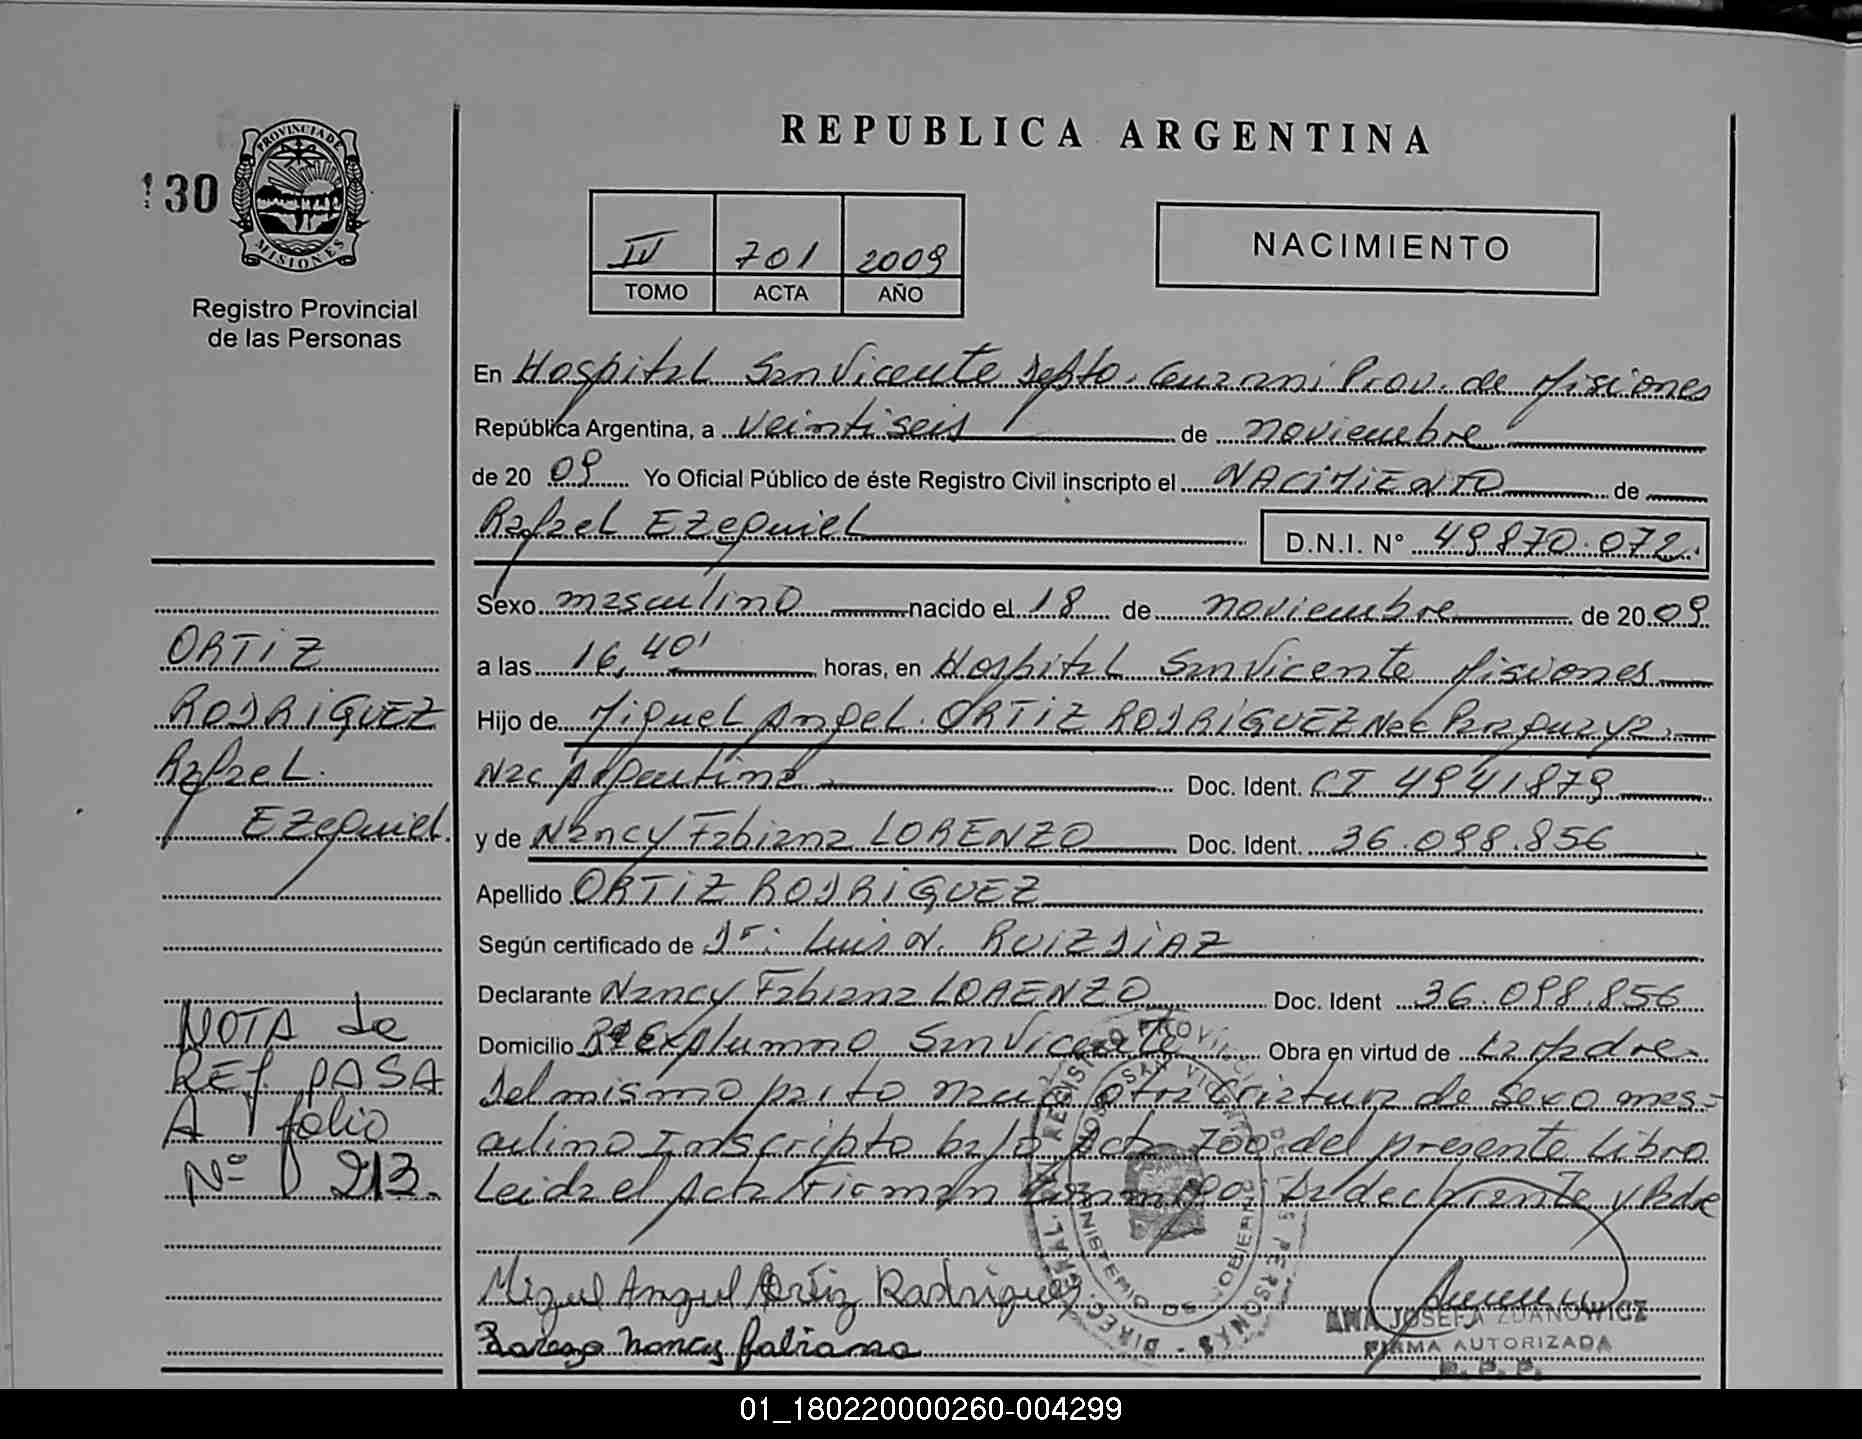 REPUBLICA ARGENTINA
130
PROVINCIA DE
MISIONES
Registro Provincial
de las Personas
IV 701 2009
TOMO ACTA AÑO
NACIMIENTO
En Hospital San Vicente Depto. Guarani Prov. de Misiones
República Argentina, a veintiseis de noviembre
de 20 09 Yo Oficial Público de éste Registro Civil inscripto el NACIMIENTO de
Rafael EZequiel D.N.I. N° 49870.072.
Sexo masculino nacido el 18 de noviembre de 20 09
a las 16,40' horas, en Hospital San Vicente Misiones
Hijo de Miguel Angel ORTIZ RODRIGUEZ Nac Paraguaya
Nac Argentina Doc. Ident. CI 4941879
y de Nancy Fabiana LORENZO Doc. Ident. 36.098.856
Apellido ORTIZ RODRIGUEZ
Según certificado de Dr: Luis N. RUIZ DIAZ
Declarante Nancy Fabiana LORENZO Doc. Ident 36.098.856
Domicilio Explumno San Vicente Obra en virtud de La Madre
Del mismo parto nació otra criatura de sexo mas-
culino Inscripto bajo Acta 700 del presente Libro
Leida el Acta Firman conmigo la declarante y Padre
Miguel Angel Ortiz Rodriguez
Nancy fabiana
ORTIZ
RODRIGUEZ
Rafael
EZequiel.
NOTA de
REF. PASA
A folio
Nº 213.
ANA JOSEFA ZDANOWICZ
FIRMA AUTORIZADA
R. P. P.
01_180220000260-004299